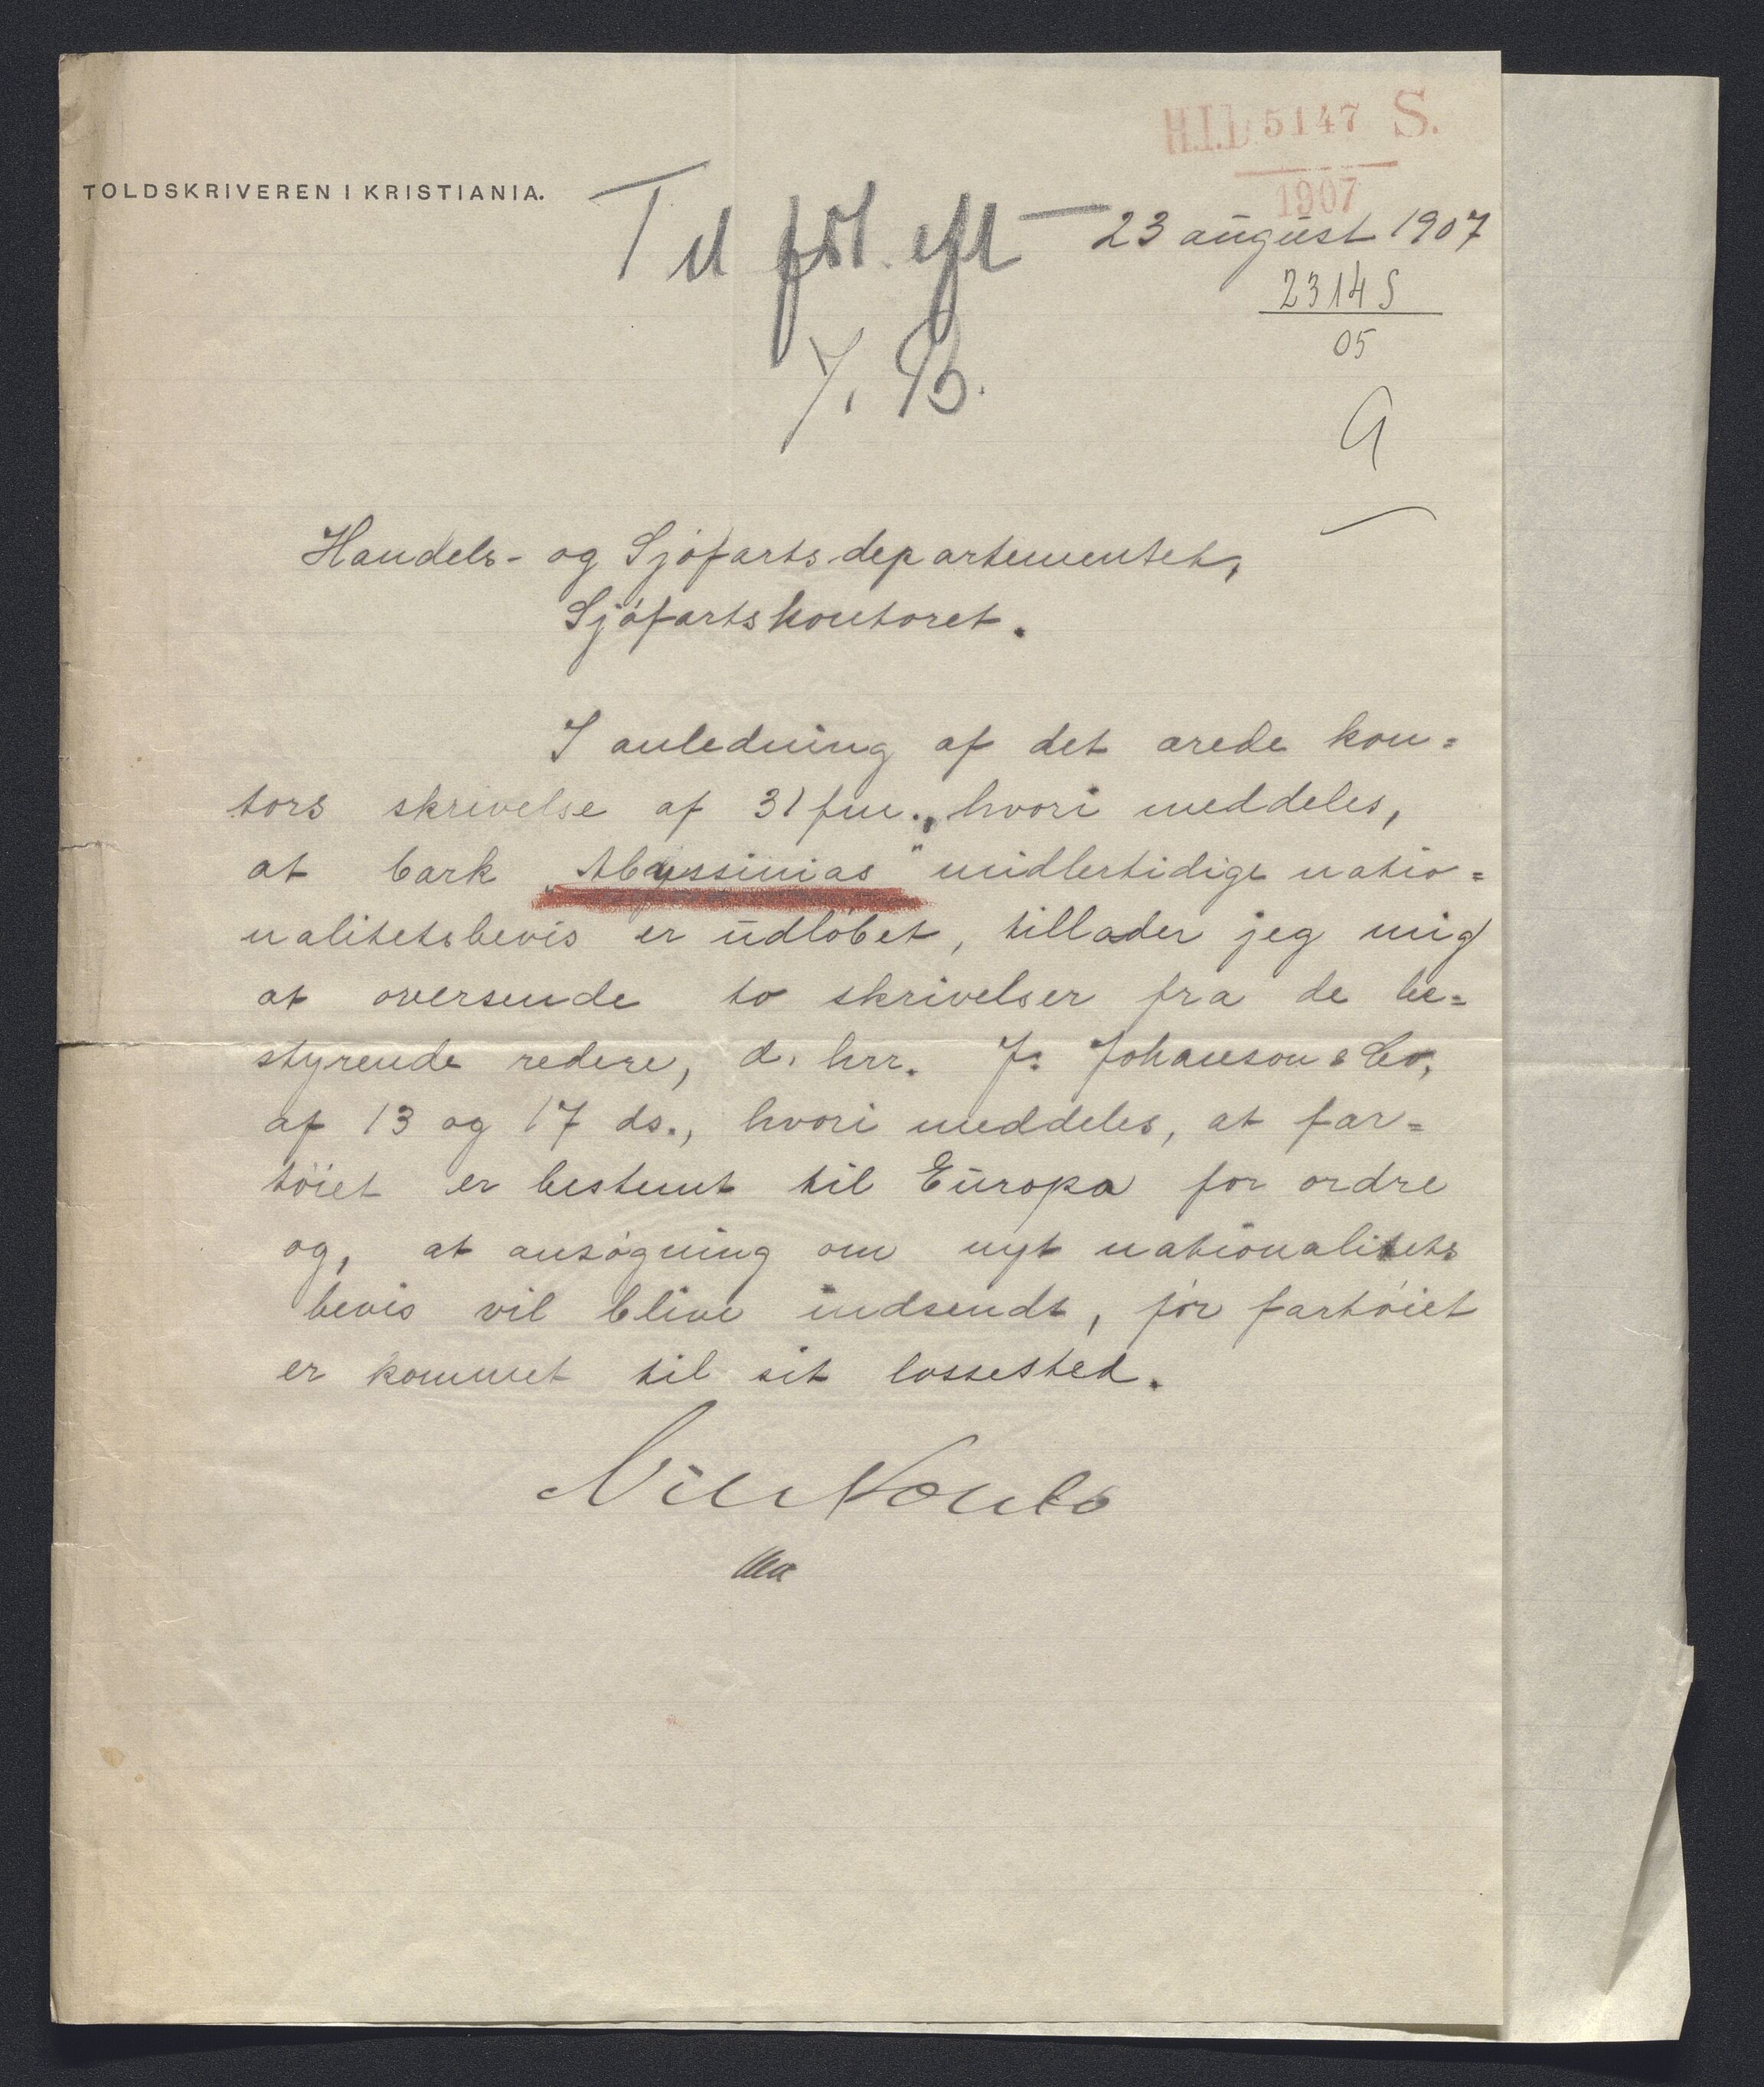 H.I.D 5147 S.
1907
TOLDSKRIVEREN I KRISTIANIA.
Til føl. eft
23 august 1907
2314 S
05
Handels- og Sjøfartsdepartementet,
Sjøfartskontoret.
I anledning af det ærede kon=
tors skrivelse af 31 fm., hvori meddeles,
at bark „Abyssinias" midlertidige natio=
nalitetsbevis er udløbet, tillader jeg mig
at oversende to skrivelser fra de be=
styrende redere, d. hrr. J. Johanson & Co,
af 13 og 17 ds., hvori meddeles, at far=
tøiet er bestemt til Europa for ordre
og, at ansøgning om nyt nationalitets
bevis vil blive indsendt, før fartøiet
er kommet til sit lossested.